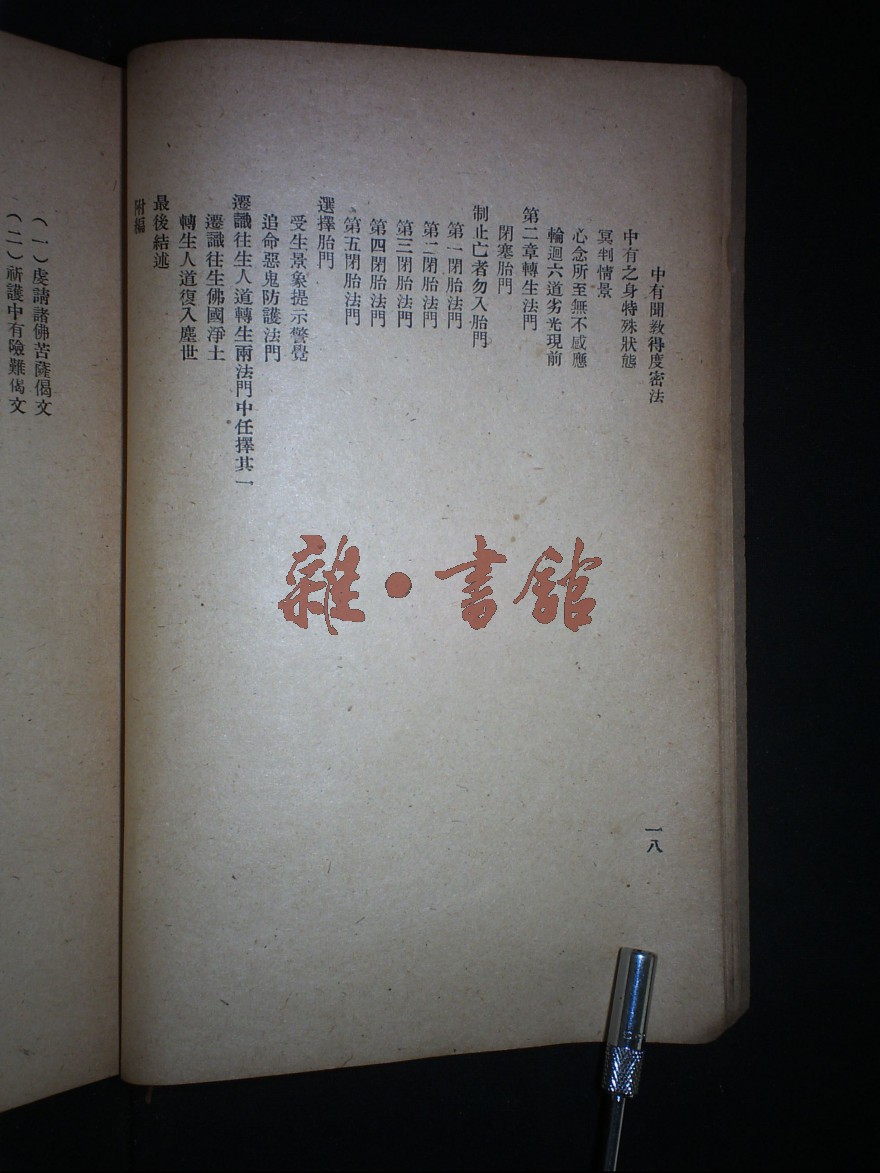 中有聞敎得度密法
中有之身特殊狀態
冥判情景
心念所至無不感應
輪迴六道劣光現前
第二章轉生法門
閉塞胎門
制止亡者勿入胎門
第一閉胎法門
第二閉胎法門
第三閉胎法門
第四閉胎法門
第五閉胎法門
選擇胎門
受生景象提示警覺
追命惡鬼防護法門
遷識往生人道轉生兩法門中任擇其一
遷識往生佛國淨土
轉生人道復入塵世
最後結述
附編
一八
(一)虔請諸佛苦薩偈文
(二)祈護中有險難偈文
雜·書館